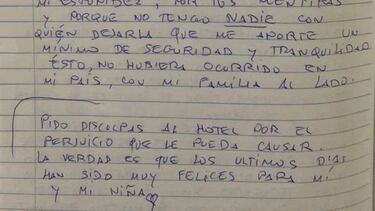 MI ESTUPIDEZ, POR TUS MENTIRAS
Y PORQUE NO TENGO NADIE CON
QUIÉN DEJARLA QUE ME APORTE UN
MÍNIMO DE SEGURIDAD Y TRANQUILIDAD
ÉSTO, NO HUBIERA OCURRIDO EN
MI PAÍS, CON MI FAMILIA AL LADO.
PIDO DISCULPAS AL HOTEL POR EL
PERJUICIO QUE LE PUEDA CAUSAR.
LA VERDAD ES QUE LOS ULTIMOS DÍAS
HAN SIDO MUY FELICES PARA MÍ
Y MI NIÑA